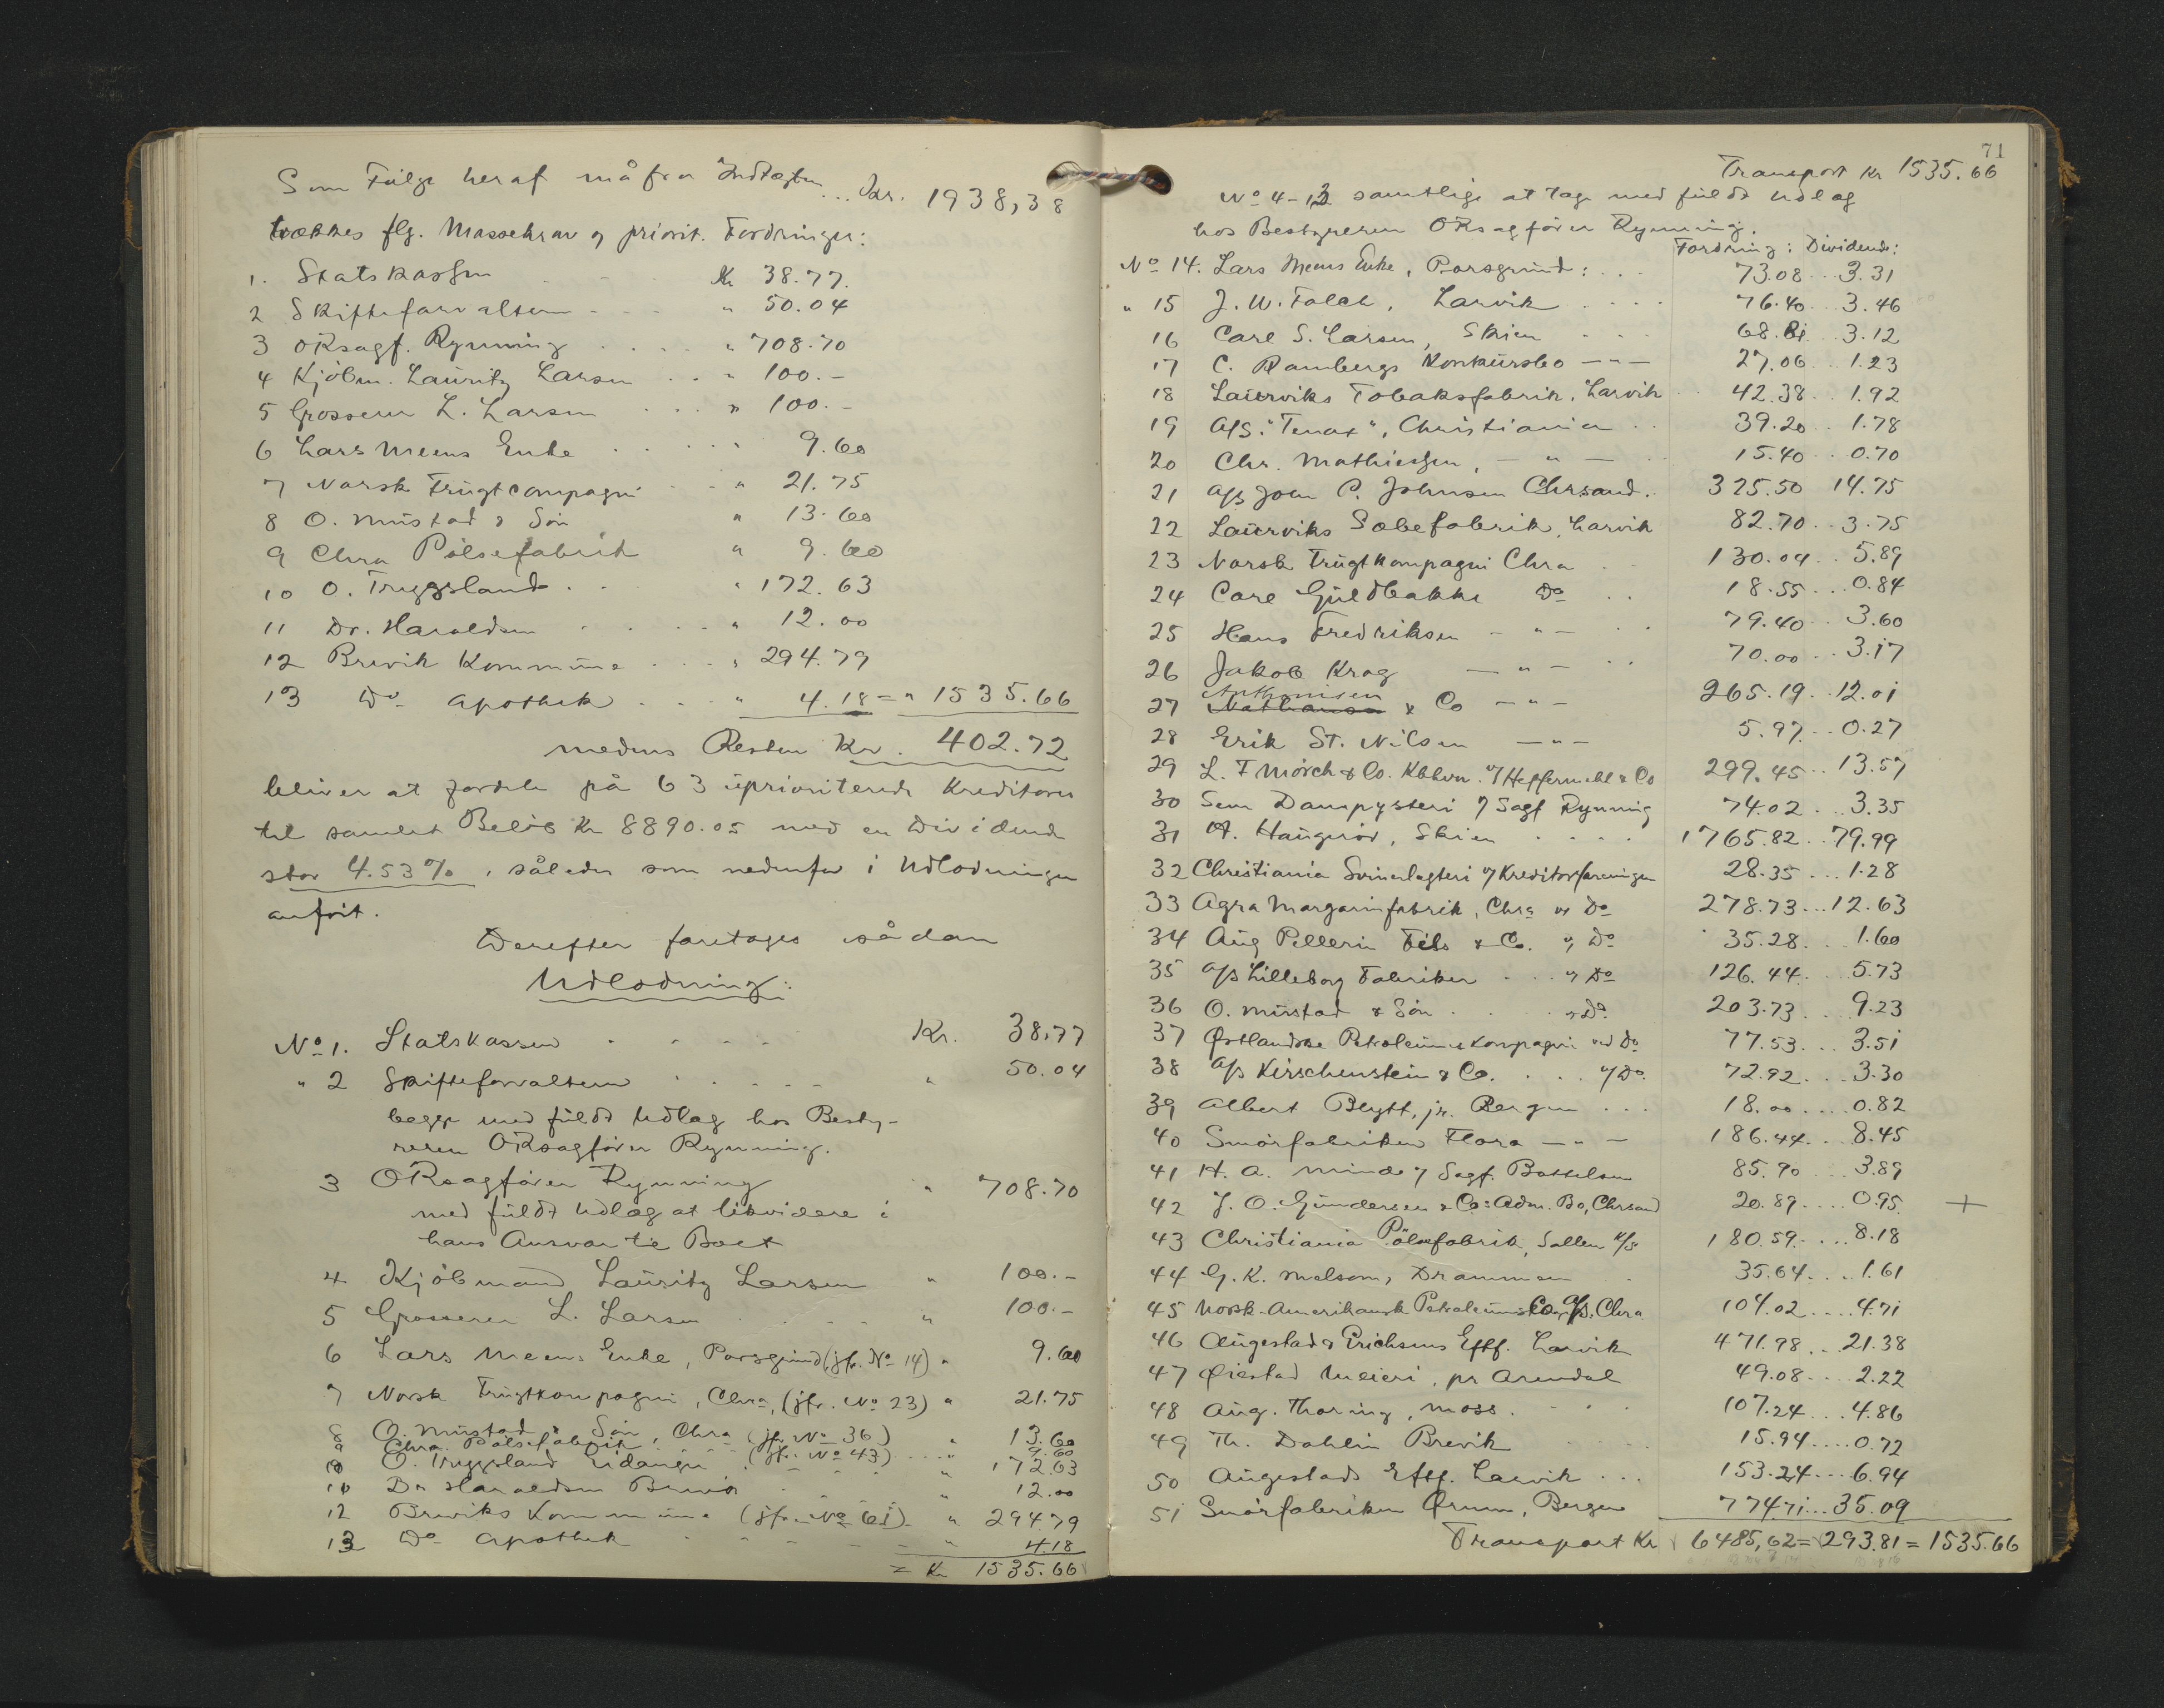 Som Følge heraf må fra Indtægten ... Kr. 1938,38
trækkes flg. Massekrav og priorit. Fordringer:
1. Statskassen Kr 38.77.
2 Skifteforvalteren " 50.04
3 ORsagf. Rynning " 708.70
4 Kjøbm. Lauritz Larsen " 100.-
5 Grosserer L. Larsen " 100.-
6 Lars Meens Enke " 9.60
7 Norsk Frugtcompagni " 21.75
8 O. Mustad & Søn " 13.60
9 Chra Pølsefabrik " 9.60
10 O. Tryggsland " 172.63
11 Dr. Haraldsen " 12.00
12 Brevik Kommune " 294.79
13 Do Apothek " 4.18 = " 1535.66
medens Resten Kr. 402.72
bliver at fordele på 63 uprioriterede Kreditorer
til samlet Beløb Kr 8890.05 med en Dividende
stor 4.53%, således som nedenfor i Udlodningen
anført.
Derefter foretages sådan
Udlodning:
No 1. Statskassen Kr. 38,77
" 2 Skifteforvalteren " 50.04
begge med fuldt Udlæg hos Besty-
reren ORsagfører Rynning.
3 ORsagfører Rynning " 708.70
med fuldt Udlæg at likvidere i
hans Ansvar til Boet
4 Kjøbmand Lauritz Larsen " 100.-
5 Grosserer L. Larsen " 100.-
6 Lars Meens Enke, Porsgrund (jfr. No 14) " 9.60
7 Norsk Frugtkompagni, Chra, (jfr. No 23) " 21.75
8 O. Mustad & Søn, Chra (jfr. No 36) " 13.60
9 Chra. Pølsefabrik (jfr. No 43) " 9.60
10 O. Tryggsland Eidanger " 172.63
11 Dr Haraldsen Brevik " 12.00
12 Breviks Kommune (jfr. No 61) " 294.79
13 Do Apothek " 4.18
= Kr 1535.66
71
Transport Kr 1535.66
No 4-13 samtlige at tage med fuldt Udlæg
hos Bestyreren ORsagfører Rynning.
Fordring: Dividende:
No 14. Lars Meens Enke, Porsgrund: 73.08 3.31
" 15 J. W. Falch, Larvik 76.40 3.46
16 Carl S. Larsen, Skien 68.81 3.12
17 C. Rambergs Konkursbo — " — 27.06 1.23
18 Laurviks Tobaksfabrik, Larvik 42.38 1.92
19 A/S. "Tenax", Christiania 39.20 1.78
20 Chr. Mathiessen, — " — 15.40 0.70
21 A/S John P. Johnsen Chrsand. 325.50 14.75
22 Laurviks Sæbefabrik, Larvik 82.70 3.75
23 Norsk Frugtkompagni Chra 130.04 5.89
24 Carl Guldbakke Do 18.55 0.84
25 Hans Fredriksen — " — 79.40 3.60
26 Jakob Krag — " — 70.00 3.17
Anthonisen
27 Nathansen & Co — " — 265.19 12.01
28 Erik St. Nilsen — " — 5.97 0.27
29 L. F Mørch & Co. Kbhvn. v/ Heffermehl & Co 299.45 13.57
30 Sem Dampysteri v/ Sagf Rynning 74.02 3.35
31 A. Haugerød, Skien 1765.82 79.99
32 Christiania Svineslagteri v/ Kreditorforeningen 28.35 1.28
33 Agra Margarinfabrik, Chra v/ Do 278.73 12.63
34 Aug Pellerin Fils & Co. v/ Do 35.28 1.60
35 A/S Lilleborg Fabriker v/ Do 126.44 5.73
36 O. Mustad & Søn v/ Do. 203.73 9.23
37 Østlandske Petroleumskompagni ved Do 77.53 3.51
38 A/S Kirschenstein & Co. v/ Do. 72.92 3.30
39 Albert Blytt, jr. Bergen 18.00 0.82
40 Smørfabriken Flora — " — 186.44 8.45
41 H. A. Minde v/ Sagf. Bottelsen 85.90 3.89
42 J. O. Gundersen & Co: Adm. Bo, Chrsand 20.89 0.95 +
43 Christiania Pølsefabrik, Sollem K/S 180.59 8.18
44 G. K. Melsom, Drammen 35.64 1.61
45 Norsk-Amerikansk Petroleums Co A/S, Chra. 104.02 4.71
46 Augestad & Erichsens Eftf. Larvik 471.98 21.38
47 Øiestad Meieri, pr Arendal 49.08 2.22
48 Aug. Thoring, Moss 107.24 4.86
49 Th. Dahlin Brevik 15.94 0.72
50 Augestads Eftf. Larvik 153.24 6.94
51 Smørfabriken Ørnen, Bergen 774.71 35.09
Transport Kr 6485,62 = 293.81 = 1535.66